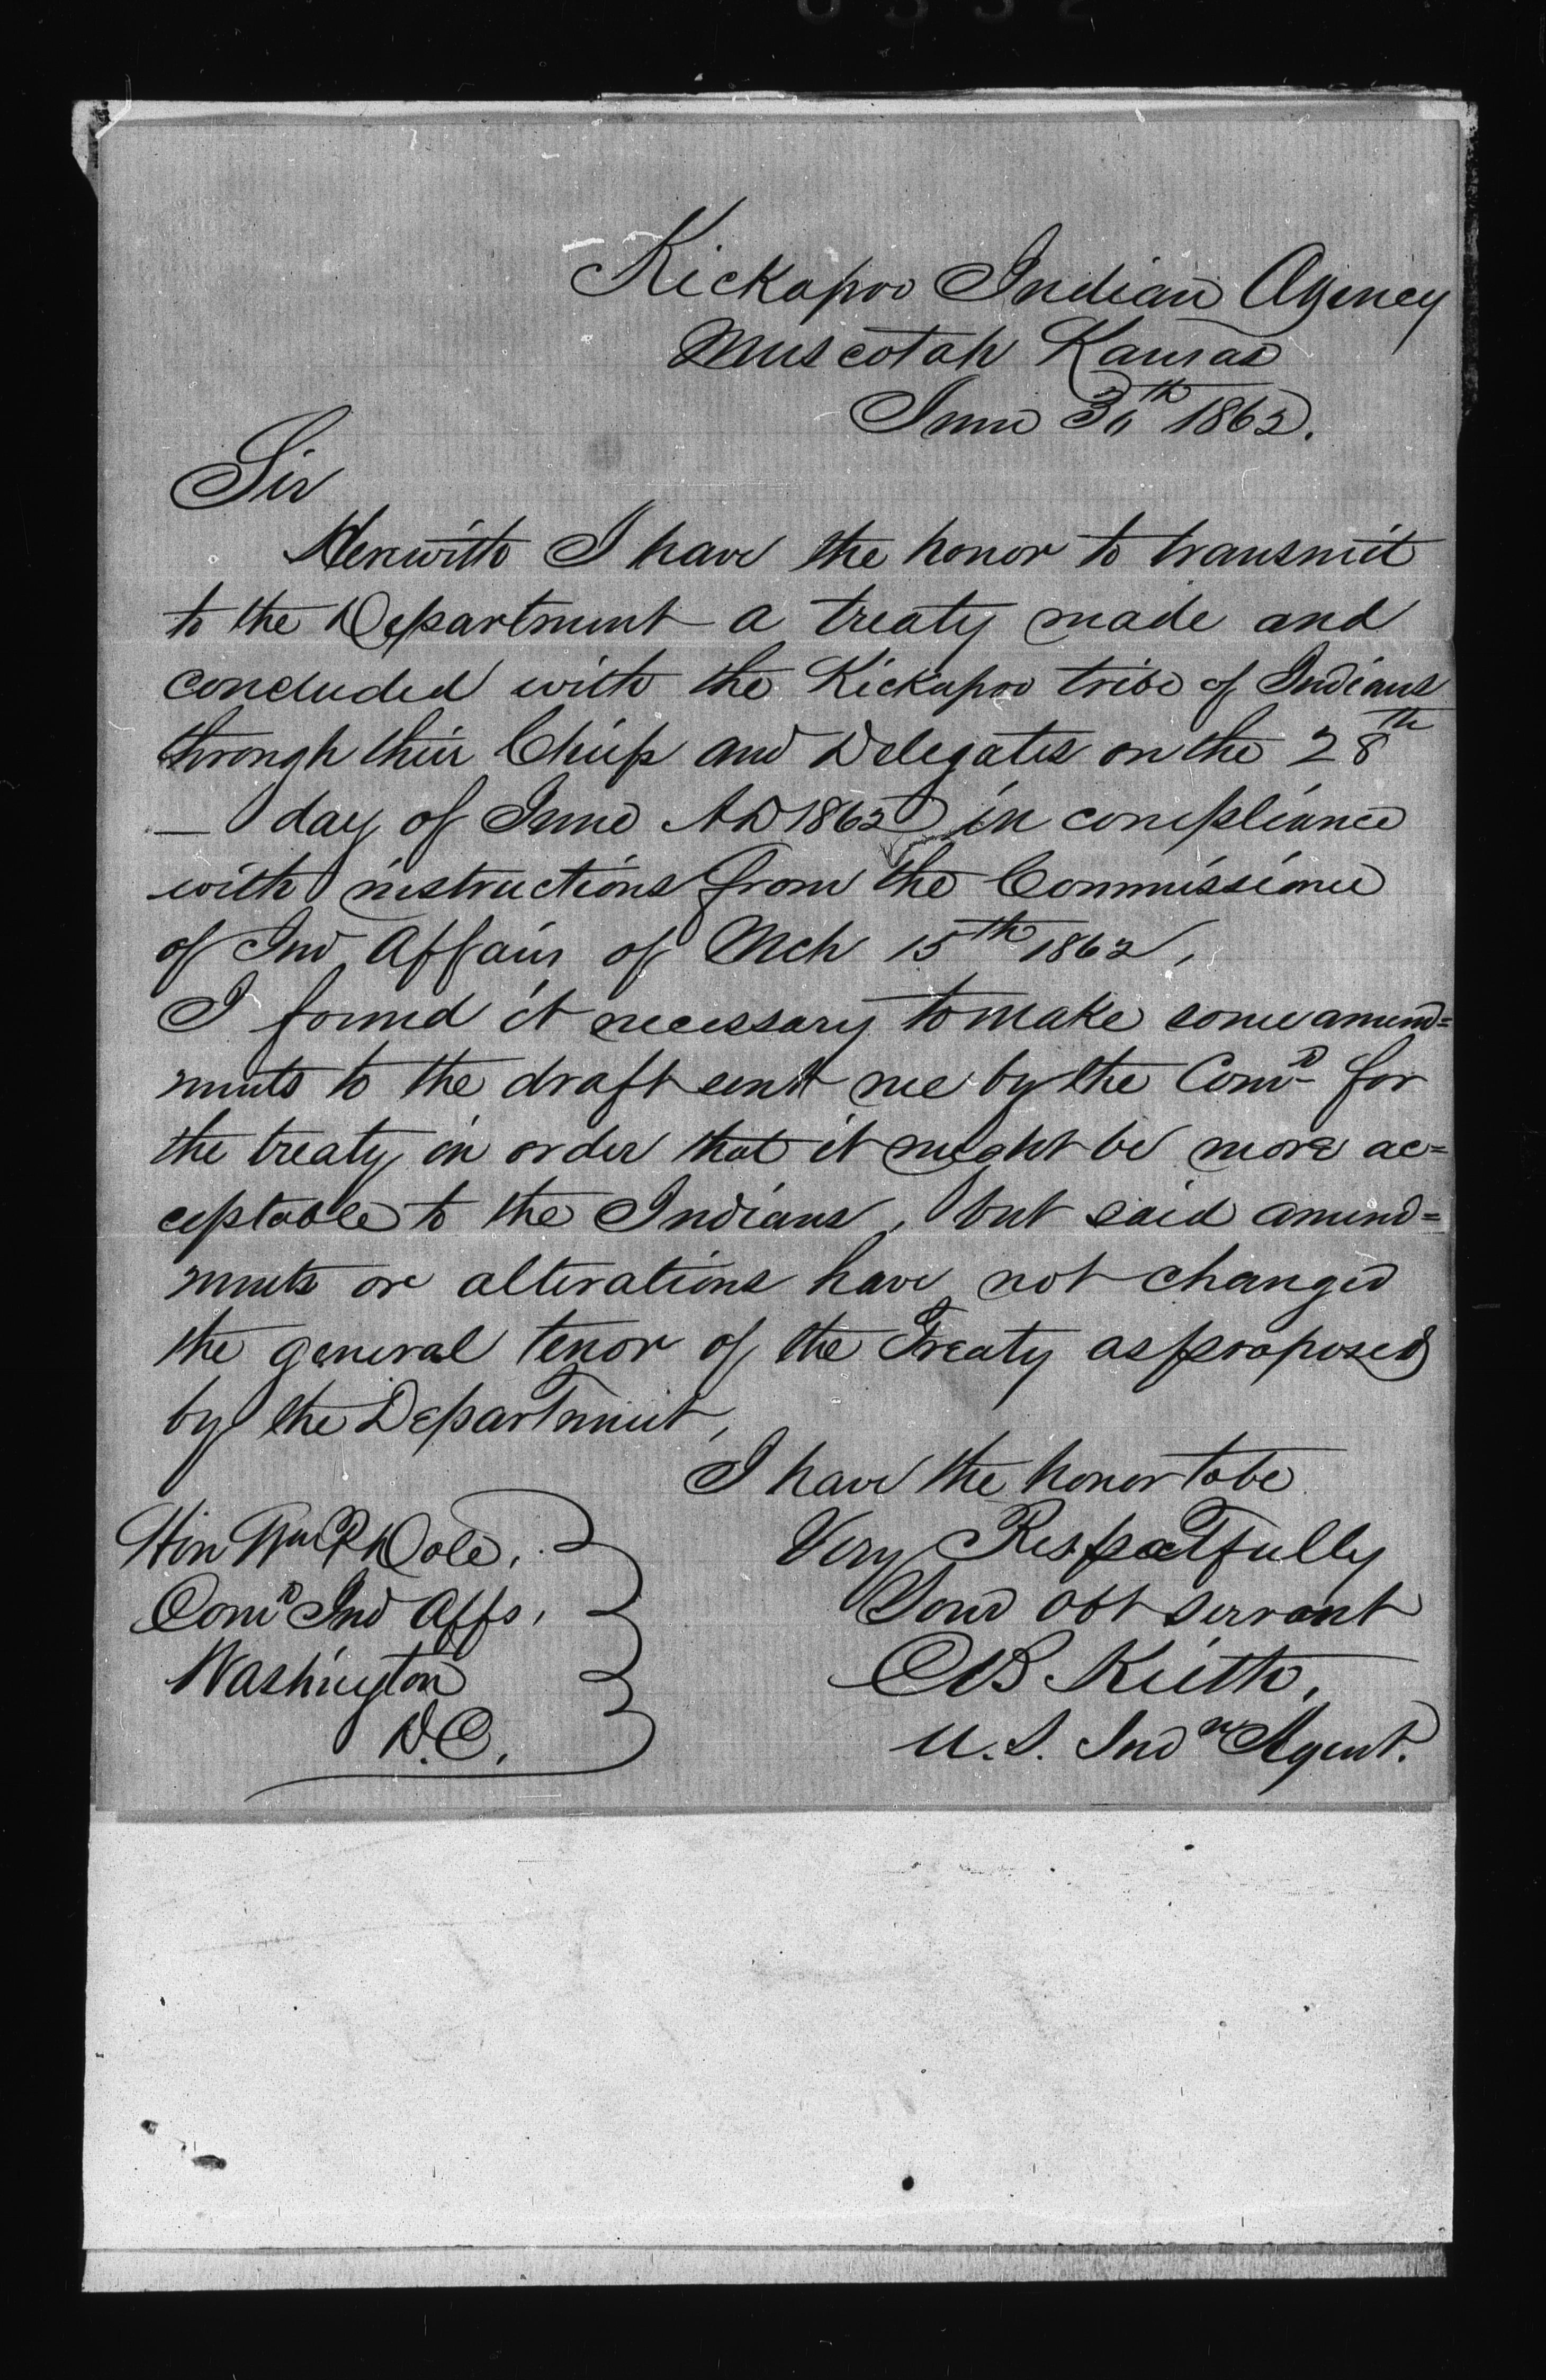 Kickapoo Indian Agency
Muscotah Kansas
June 30th 1862.
Sir
Herewith I have the honor to transmit
to the Department a treaty made and
concluded with the Kickapoo tribe of Indians
through their Chiefs and Delegates on the 28th
— day of June AD 1862 in compliance
with instructions from the Commissioner
of Ind Affairs of Mch 15th 1862,
I found it necessary to make some amend=
ments to the draft sent me by the Comr for
the treaty in order that it might be more ac=
ceptable to the Indians, but said amend=
ments or alterations have not changed
the general tenor of the Treaty as proposed
by the Department,
I have the honor to be
Very Respectfully
Your obt servant
CB Keith,
U.S. Indn Agent.
Hon Wm P Dole,
Comr Ind Affs,
Washington
D.C.